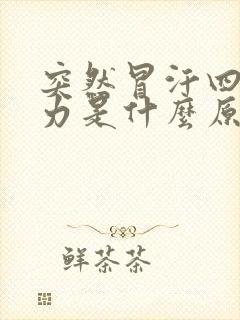 突然冒汗四
力是什麼原
鲜茶茶